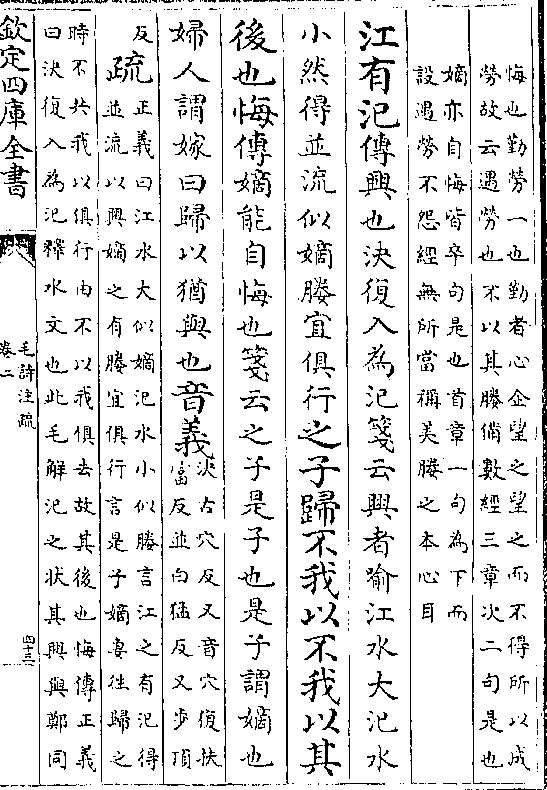 悔也勤勞一也勤者心企望之望之而不得所以成
勞故云遇勞也不以其媵備數經三章次二句是也
嫡亦自悔皆卒句是也首章一句為下而
設遇勞不怨經無所當稱美媵之本心耳
江有汜傳興也決復入為汜箋云興者喻江水大汜水
小然得並流似嫡媵宜俱行之子歸不我以不我以其
後也悔傳嫡能自悔也箋云之子是子也是子謂嫡也
婦人謂嫁曰歸以猶與也音義
決古穴反又音穴復扶
富反並白猛反又步頂
反
疏
正義曰江水大似嫡汜水小似媵言江之有汜得
並流以興嫡之有媵宜俱行言是子嫡妻往歸之
時不共我以俱行由不以我俱去故其後也悔傳正義
曰決復入為汜釋水文也此毛解汜之狀其興與鄭同
欽定四庫全書
毛詩注疏
卷二
四十三